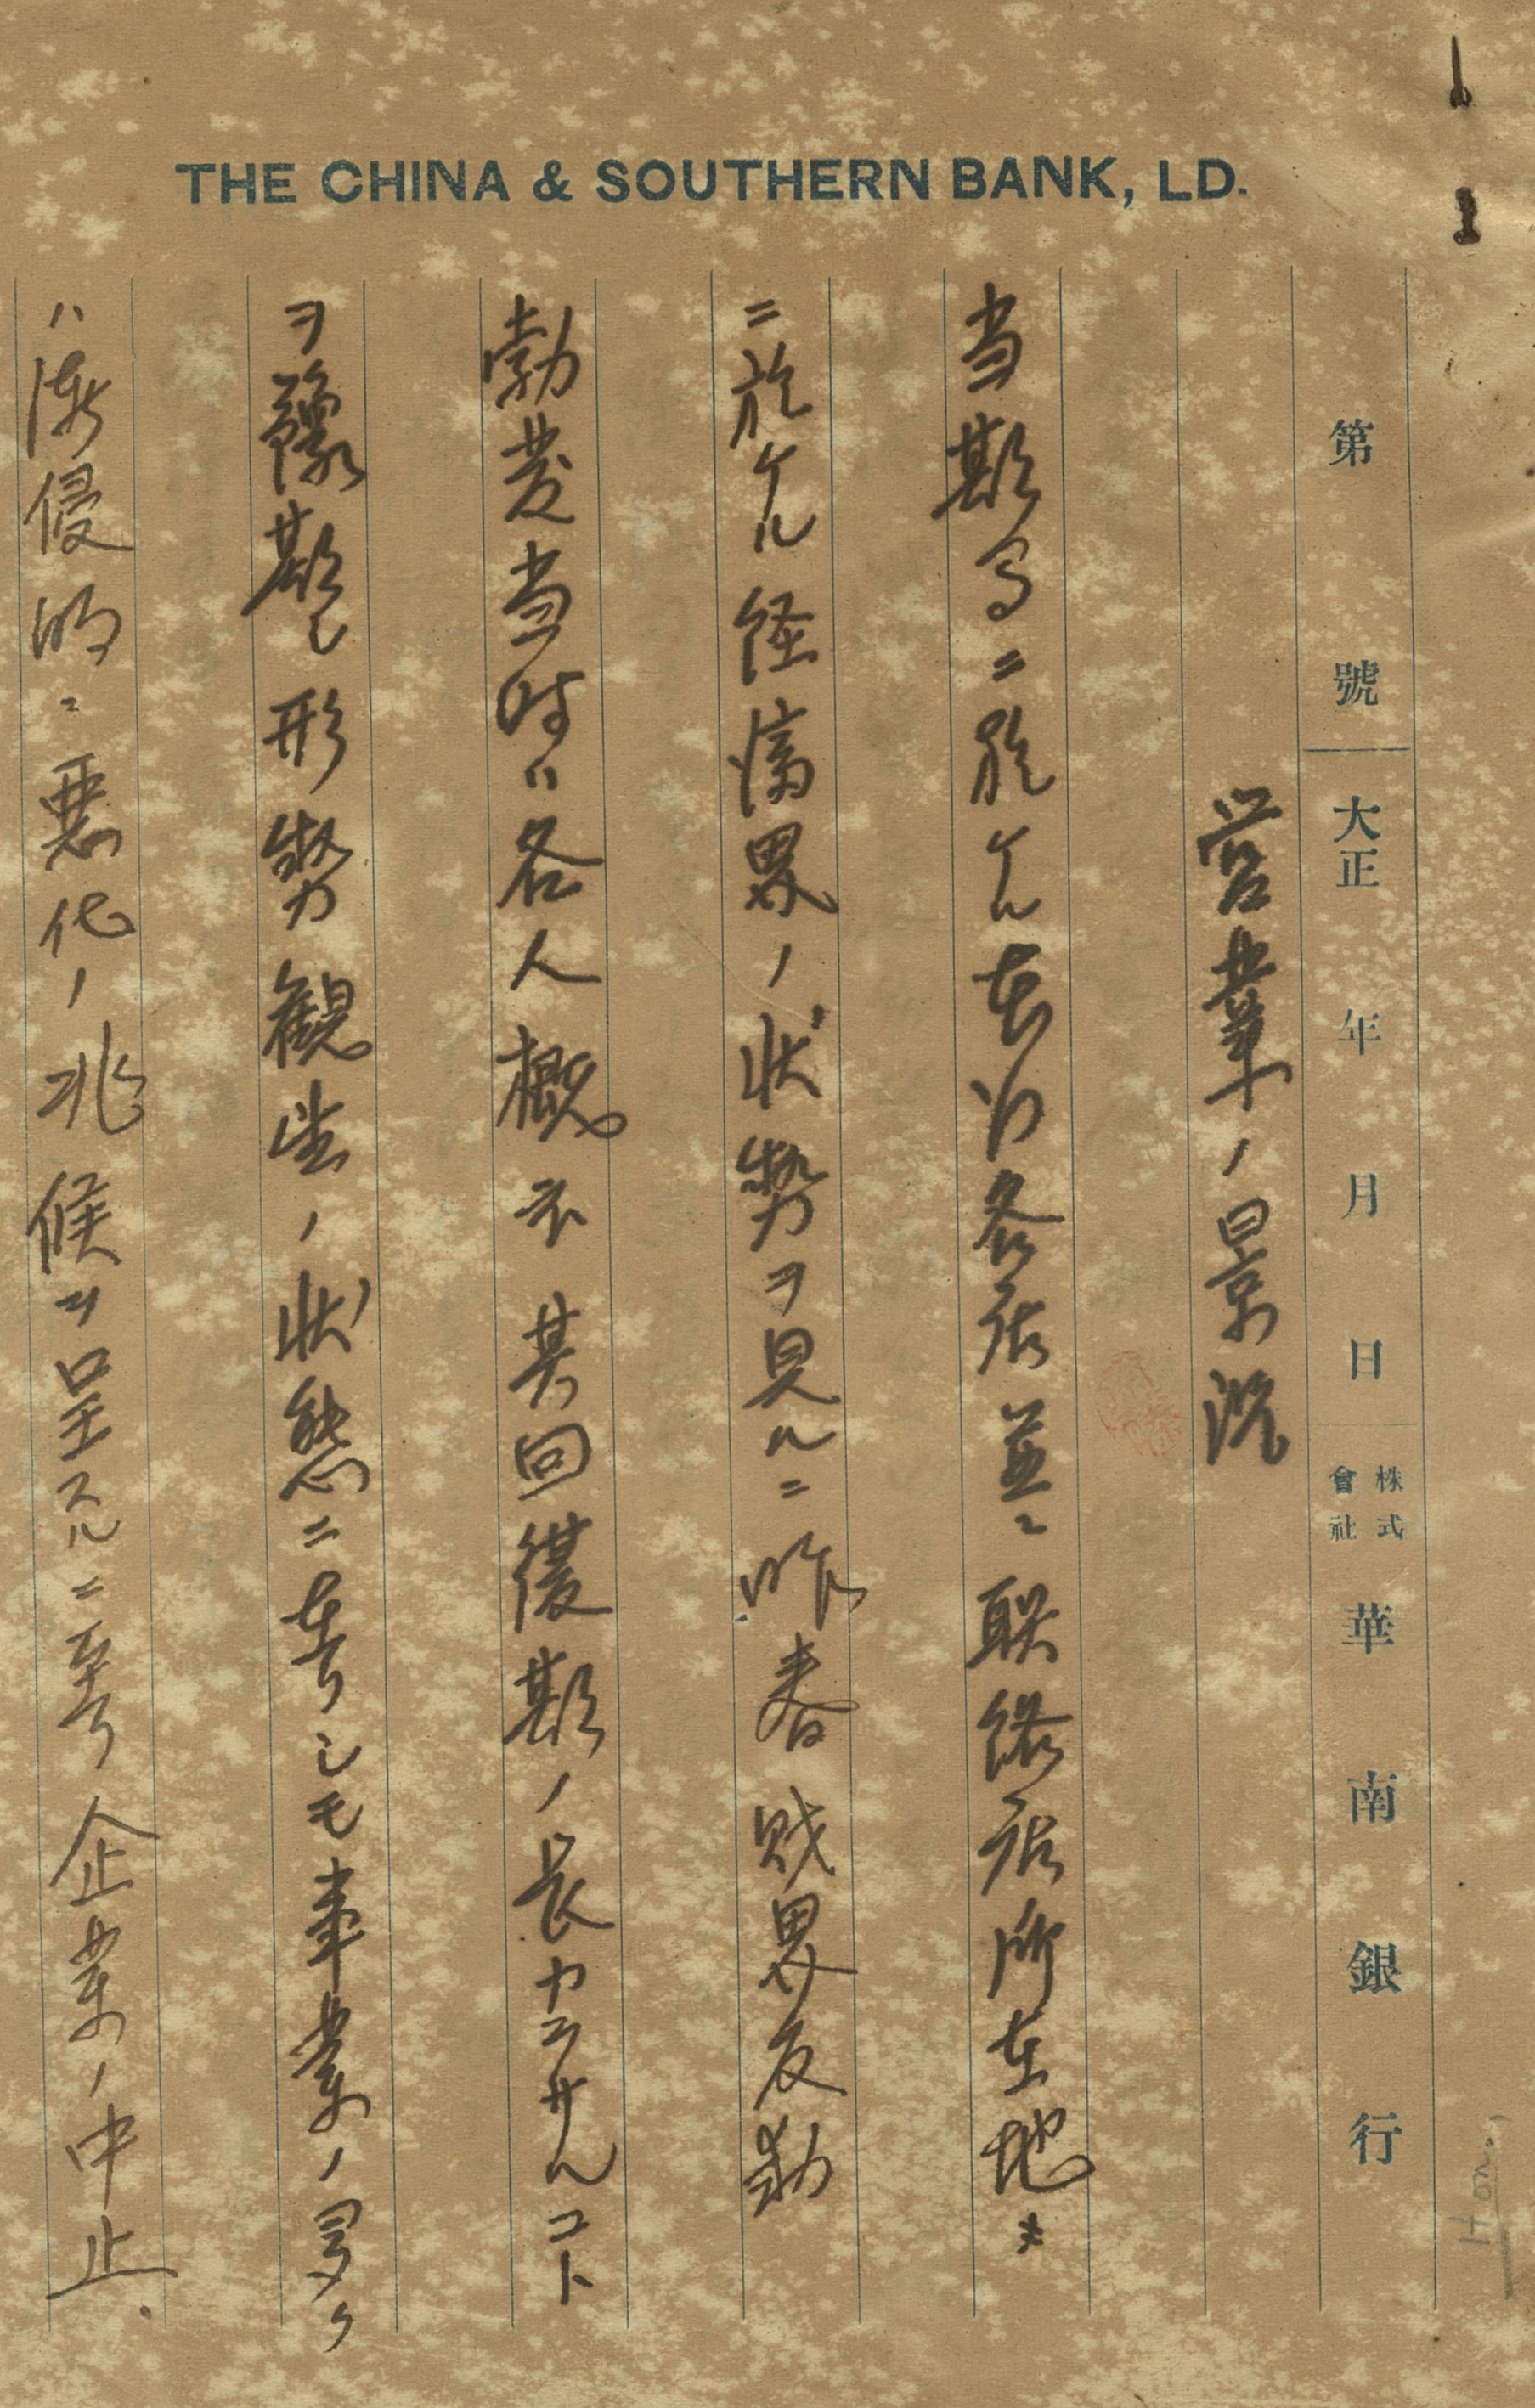 THE CHINA & SOUTHERN BANK, LD.
第 號 大正 年 月 日 株式會社 華南銀行
営業ノ景況
当期間ニ於ケル本行各店並ニ聯絡店所在地
ニ於ケル経済界ノ状勢ヲ見ルニ昨春財界反動
勃発当時ハ各人概子其回復期ノ長カラサルコト
ヲ豫期シ形勢観望ノ状態ニ在リシモ事業ノ多ク
ハ漸侵的ニ悪化ノ兆候ヲ呈スルニ至リ企業ノ中止